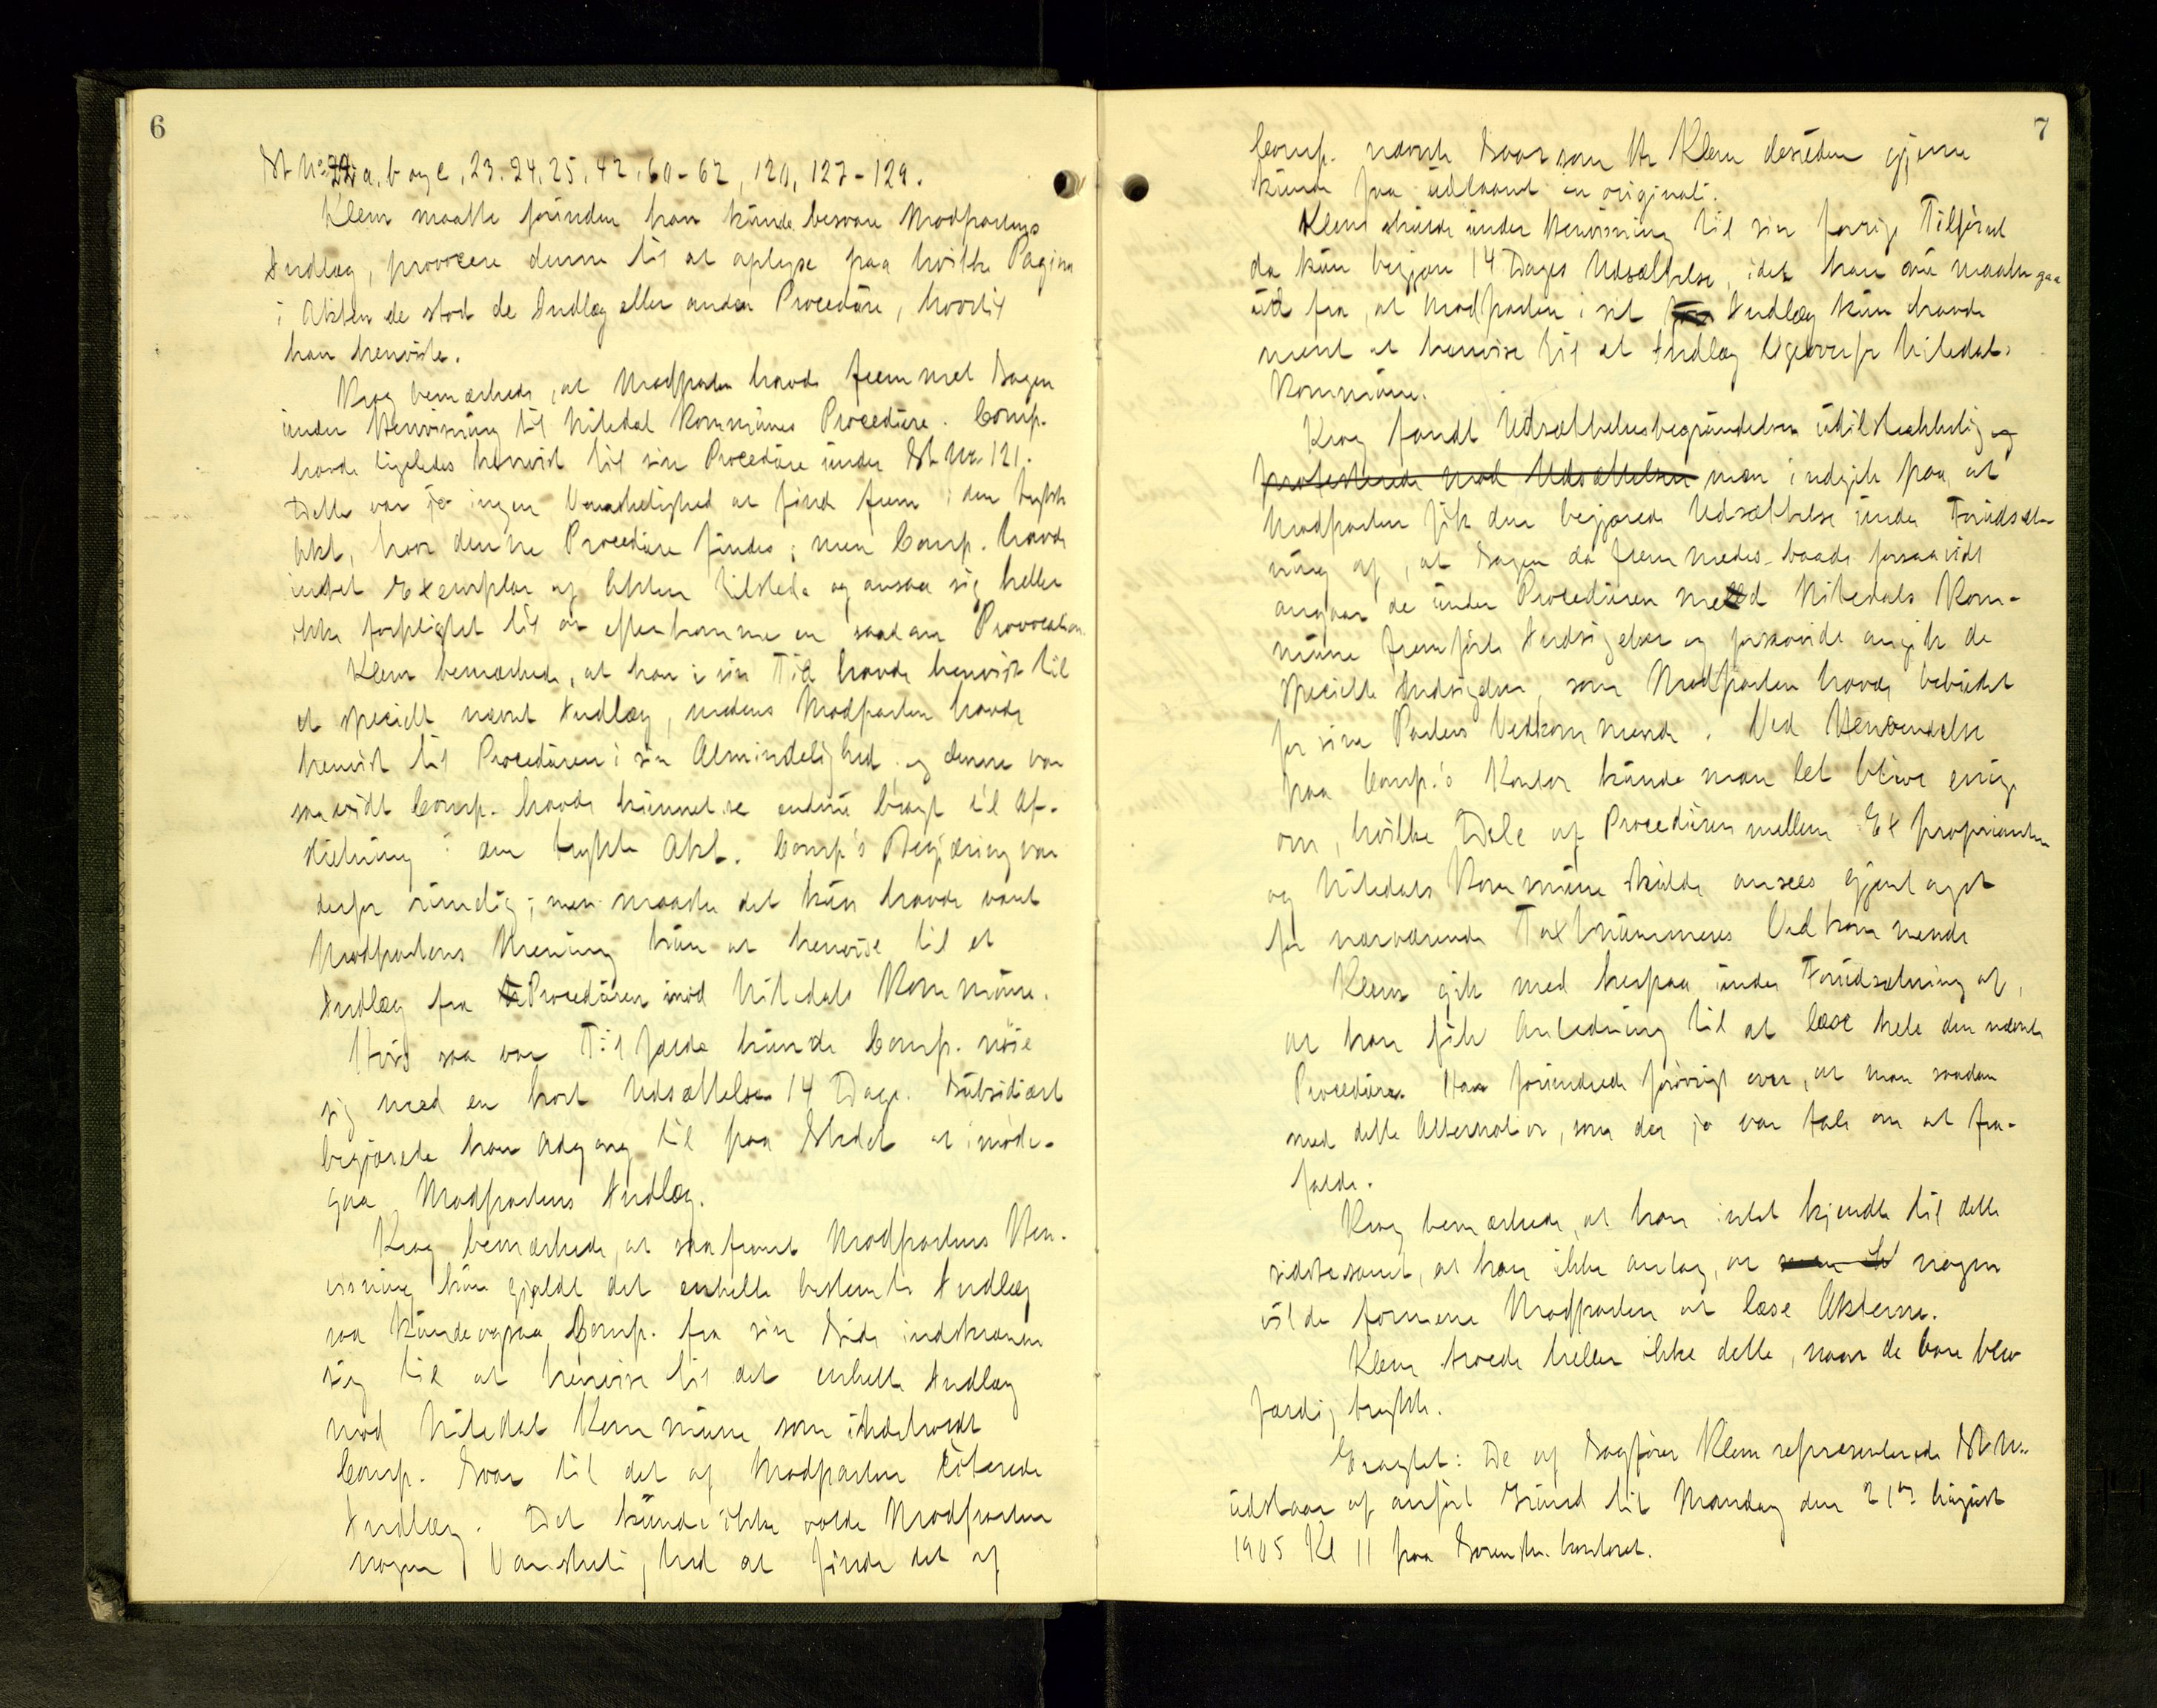 6
St. No 22 a, b og c, 23. 24. 25. 42. 60-62, 120, 127-129.
Klem maatte forinden han kunde besvare Modpartens
Indlæg, provocere denne til at oplyse paa hvilke Pagina
i Akten de stod de Indlæg eller anden Procedure, hvortil
han henviste.
Krog bemærkede, at Modparten havde fremmet Sagen
under Henvisning til Nitedal Kommunes Procedure. Comp.
havde ligeledes henvist til sin Procedure under St. No. 121.
Dette var jo ingen Vanskelighed at finde frem i den trykte
Akt, hvor denne Procedure findes; men Comp. havde
intet Exemplar af Akten tilstede og ansaa sig heller
ikke forpligtet til at efterkomme en saadan Provocation.
Klem bemærkede, at han i sin Tid havde henvist til
et specielt nævnt Indlæg, medens Modparten havde
henvist til Proceduren i sin Almindelighed og denne var
saavidt Comp. havde kunnet se endnu bragt til Af-
slutning i den trykte Akt. Comp's Begjæring var
derfor rimelig; men maatte det kun havde været
Modpartens Mening kun at henvise til et
Indlæg fra Proceduren mod Nitedals Kommune.
Hvis saa var Tilfælde kunde Comp. nøie
sig med en kort Udsættelse 14 Dage. Subsidiært
begjærede han Adgang til paa Stedet at imøde-
gaa Modpartens Indlæg.
Krog bemærkede, at saafremt Modpartens Hen-
visning kun gjaldt det enkelte bestemte Indlæg
saa kunde ogsaa Comp. fra sin Side indskrænke
sig til at henvise til det enkelte Indlæg
mod Nitedal Kommune som indeholdt
Comp. Svar til det af Modparten citerede
Indlæg. Det kunde ikke volde Modparten
nogen Vanskelighed at finde det af
7
Comp. nævnte Svar som Hr Klem desuden gjerne
kunde faa udlaant in originali.
Klem skulde under Henvisning til sin forrige Tilførsel
da kun begjære 14 Dages Udsættelse, idet han nu maatte gaa
ud fra, at Modparten i sit Indlæg kun havde
ment at henvise til et Indlæg ligeoverfor Nitedals
Kommune.
Krog fandt Udsættelsesbegrundelsen utilstrækkelig og
protesterede mod Udsættelsen men indgik paa, at
Modparten fik den begjærede Udsættelse under Forudsæt-
ning af, at Sagen da fremmedes baade forsaavidt
angaar de under Proceduren med Nitedals Kom-
mune fremførte Indsigelser og forsaavidt angik de
specielle Indsigelser, som Modparten havde bebudet
for sine Parters Vedkommende. Ved Henvendelse
paa Comp.'s Kontor kunde man let blive enig
om, hvilke Dele af Proceduren mellem Exproprianten
og Nitedals Kommune skulde ansees gjentaget
for nærværende Taxtnummeres Vedkommende
Klem gik med herpaa under Forudsætning af,
at han fik Anledning til at læse hele den nævnte
Procedure. Han forundrede forøvrigt over, at man saadan
med dette Alternativ, som der jo var tale om at fra-
falde.
Krog bemærkede, at han intet kjendte til dette
sidste samt, at han ikke antog, at nogen
vilde formene Modparten at læse Akterne.
Klem troede heller ikke dette, naar de bare blev
færdig trykte.
Eragtet: De af Sagfører Klem repræsenterede St. No.
udstaar af anført Grund til Mandag den 21de August
1905 Kl 11 paa Sorenskr. kontoret.